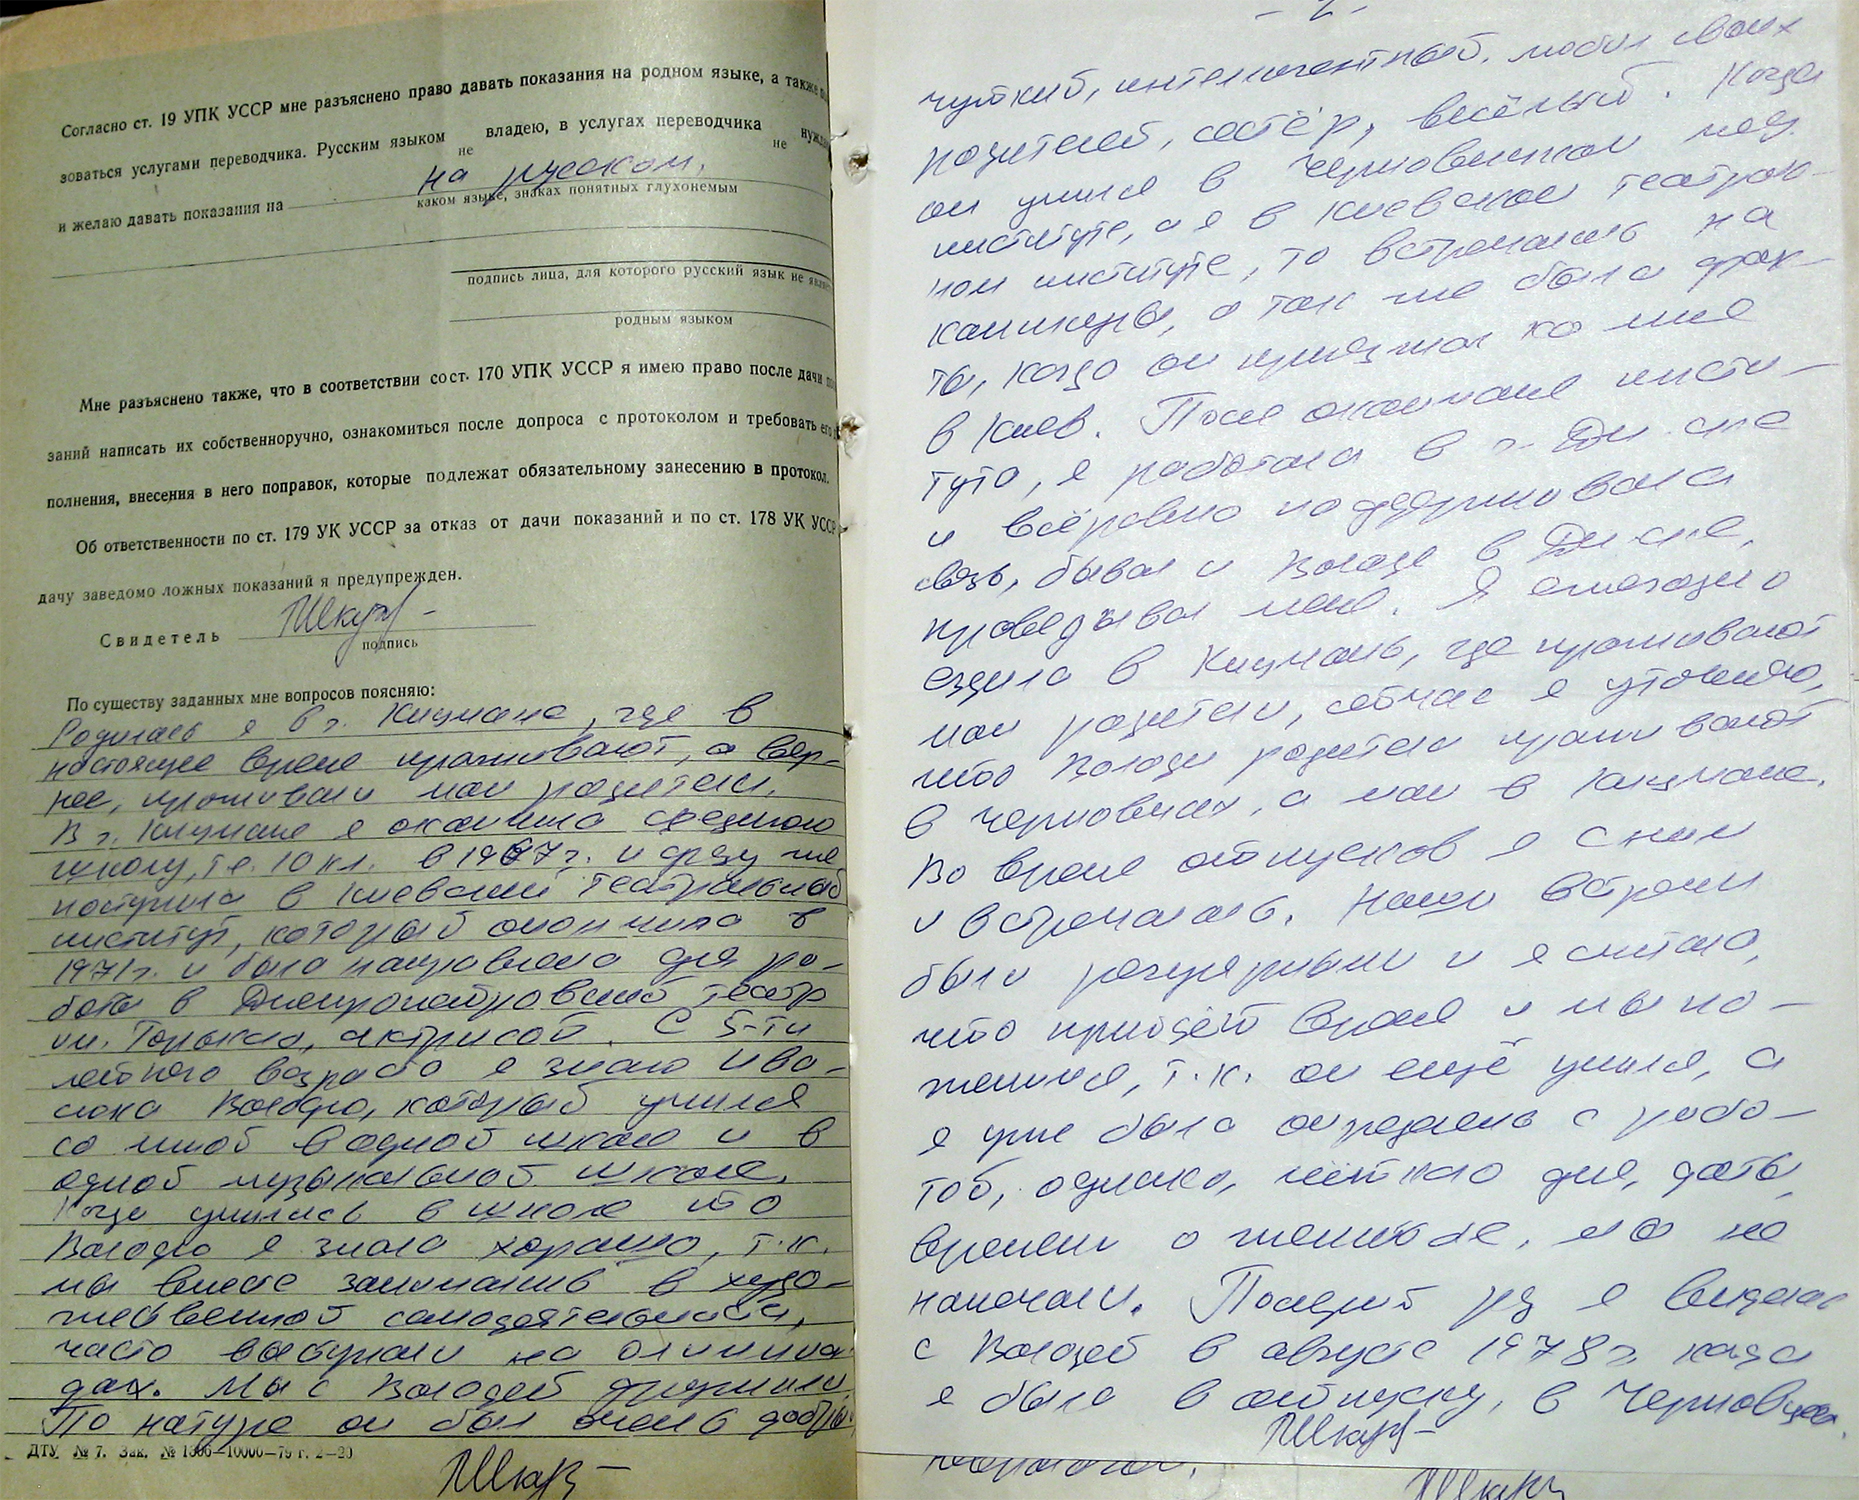 Согласно ст. 19 УПК УССР мне разъяснено право давать показания на родном языке, а также
зоваться услугами переводчика. Русским языком не владею, в услугах переводчика не
на русском.
и желаю давать показания на
каком языке, знаках понятных глухонемым
подпись лица, для которого русский язык не
родным языком
Мне разъяснено также, что в соответствии со ст. 170 УПК УССР я имею право после дачи
заний написать их собственноручно, ознакомиться после допроса с протоколом и требовать его
полнения, внесения в него поправок, которые подлежат обязательному занесению в протокол.
Об ответственности по ст. 179 УК УССР за отказ от дачи показаний и по ст. 178 УК УССР
дачу заведомо ложных показаний я предупрежден.
Свидетель
подпись
По существу заданных мне вопросов поясняю:
Родилась я в г. Кицмане, где в
настоящее время проживают, а вер-
нее, проживали мои родители.
В г. Кицмане я окончила среднюю
школу, т.е. 10 кл. в 1967 г. и сразу же
поступила в Киевский театральный
институт, который окончила в
1971 г. и была направлена для ра-
боты в Днепропетровский театр
им. Горького, актрисой. С 5-ти
летнего возраста я знаю Ива-
сюка Володю, который учился
со мной в одной школе и в
одной музыкальной школе.
Когда учились в школе то
Володю я знала хорошо, т.к.
мы вместе занимались в худо-
жественной самодеятельности,
часто выступали на олимпиа-
дах. Мы с Володей дружили.
По натуре он был очень добрый
ДТУ № 7. Зак. № 1306—10000—79 г. 2—20
- 2 -
чуткий, интелегентный, любил своих
родителей, сестёр, весёлый. Когда
он учился в Черновицком мед.
институте, а я в Киевском театраль-
ном институте, то встречались на
каникулы, а так же были фак-
ты, когда он приезжал ко мне
в Киев. После окончания инсти-
тута, я работала в г. Дн-ске
и всёравно поддерживала
связь, бывал и Володя в Дн-ске,
проведывал меня. Я ежегодно
ездила в Кицмань, где проживают
мои родители, сейчас я уточняю,
что Володи родители проживают
в Черновцах, а мои в Кицмане.
Во время отпусков я с ним
и встречалась. Наши встречи
были регулярными и я считала,
что прийдёт время и мы по-
женимся, т.к. он ещё учился, а
я уже была определена с рабо-
той, однако, чёткого дня, даты,
времени о женитьбе, мы не
намечали. Последний раз я виделась
с Володей в августе 1978 г. когда
я была в отпуску, в Черновцах.